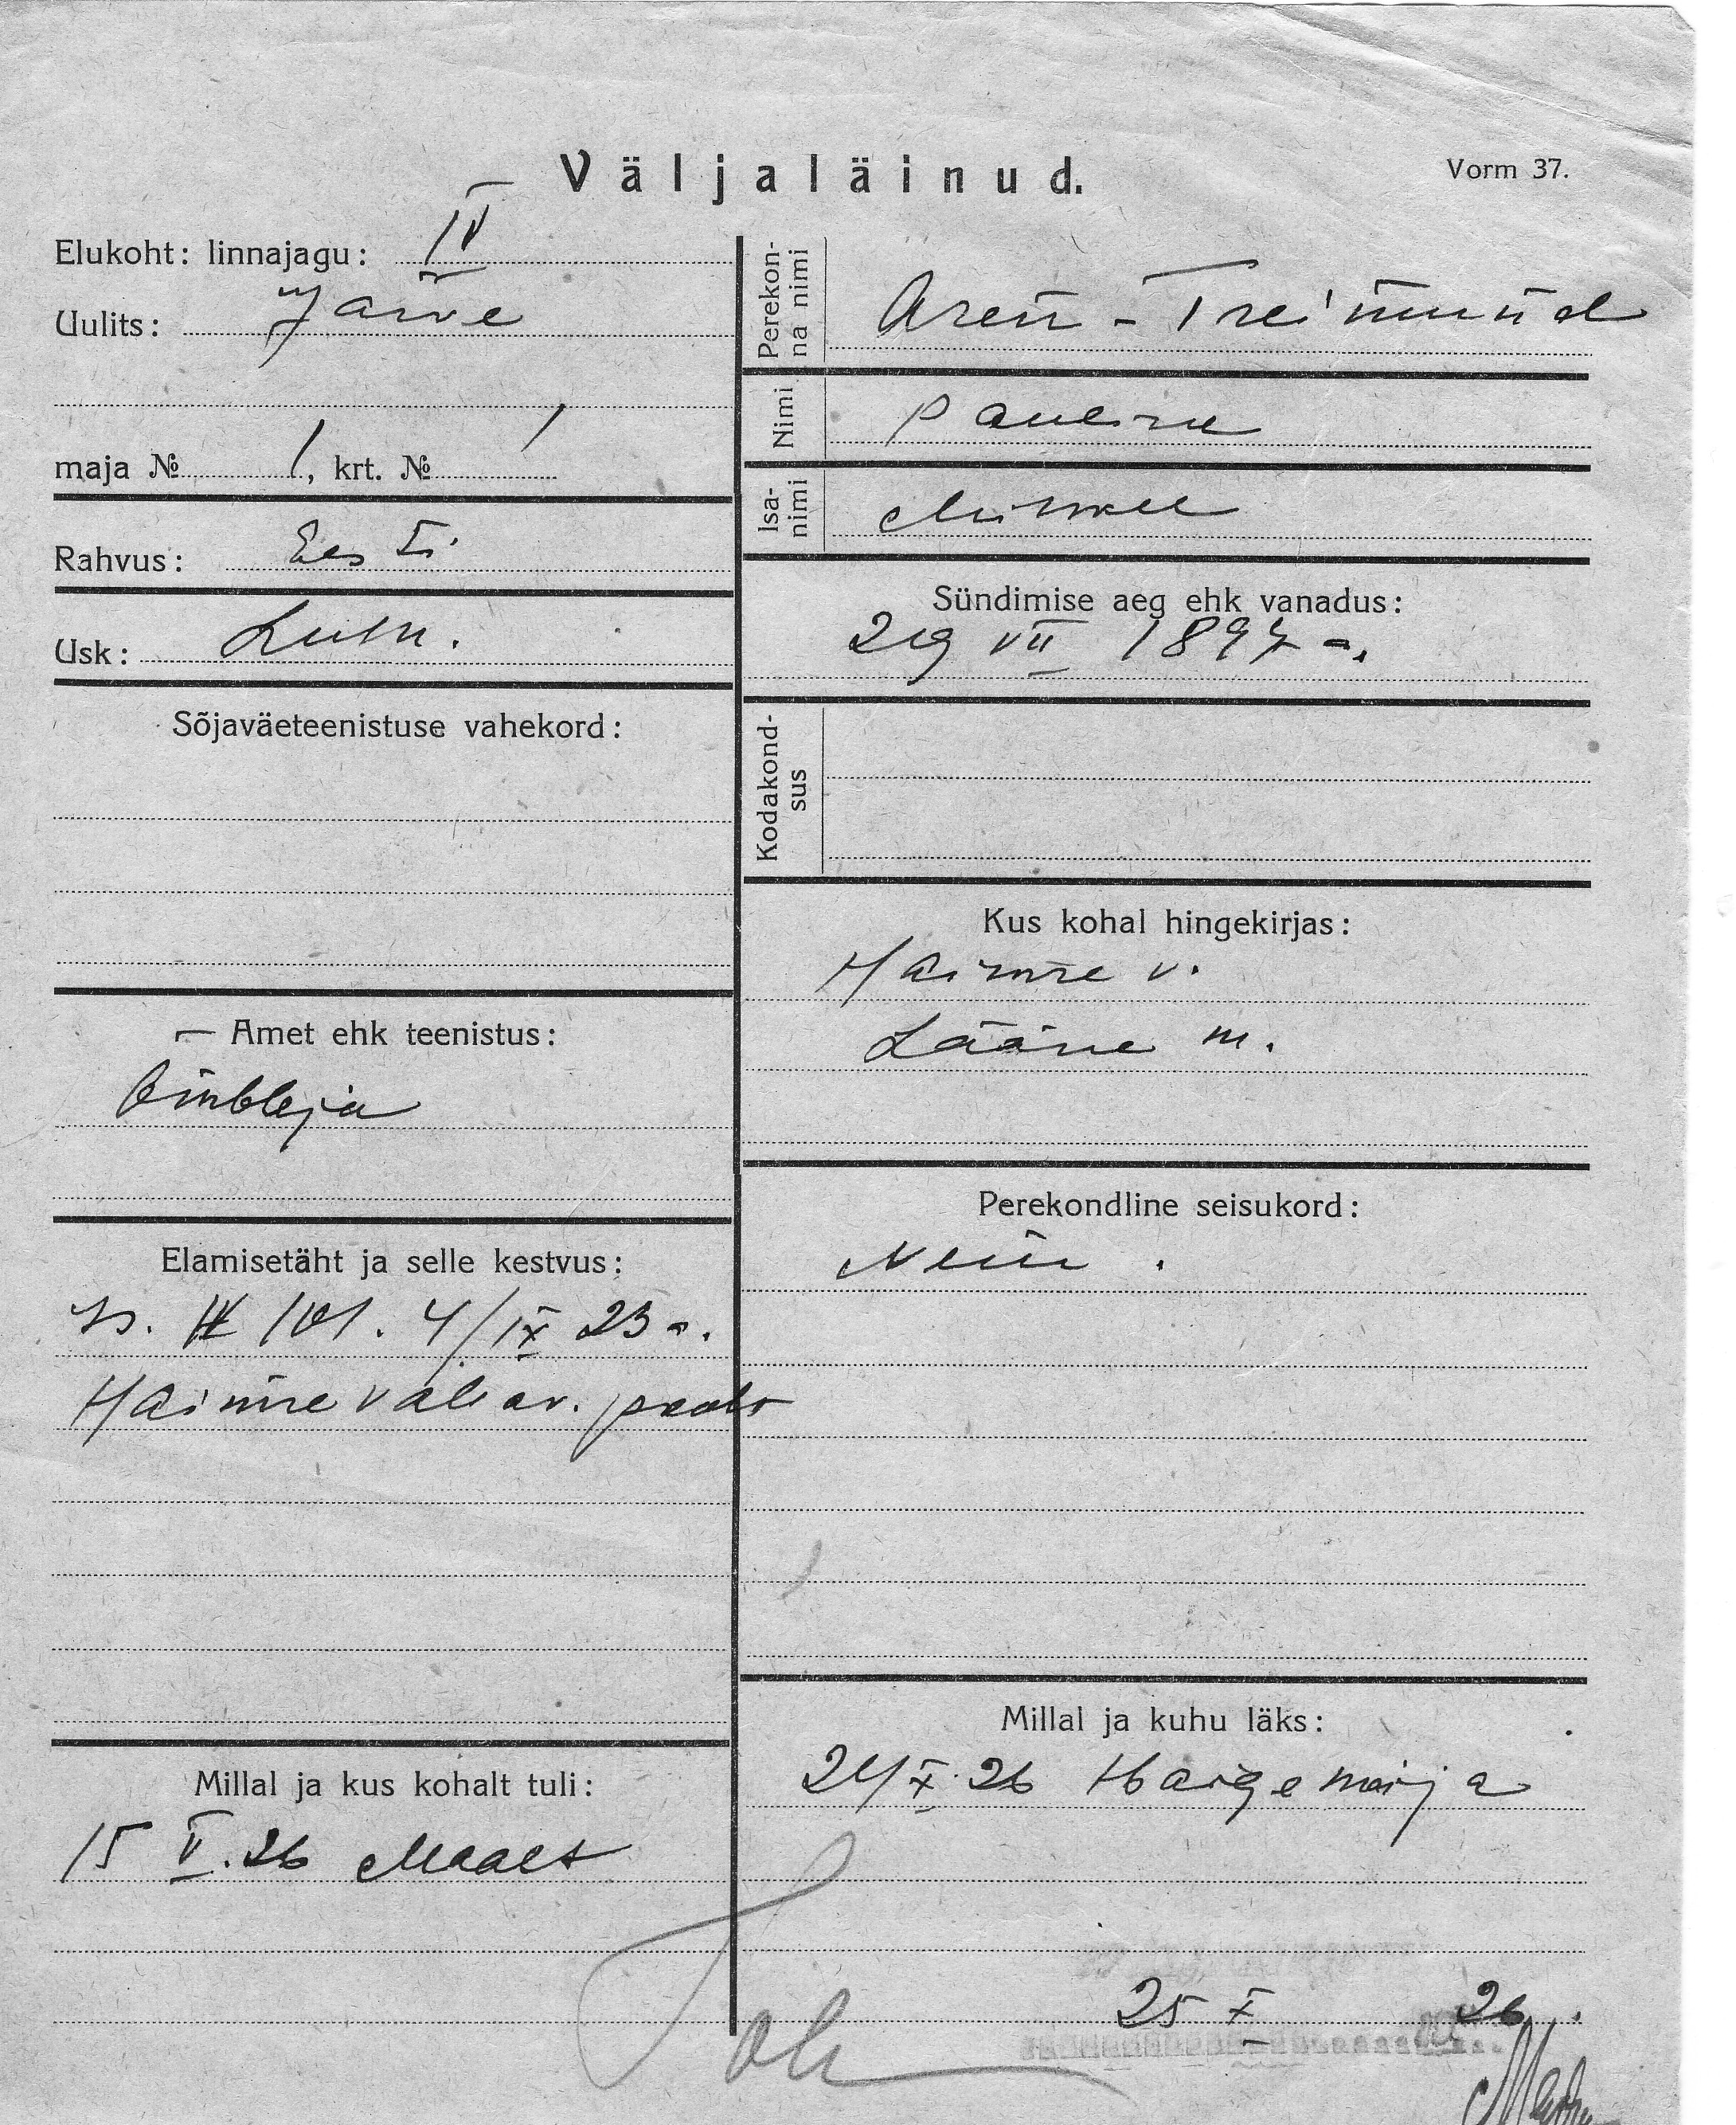 Väljaläinud.
Vorm 37.
Elukoht: linnajagu: IV
Uulits: Järve
maja № 1, krt. № 1
Rahvus: Eesti
Usk: Luth.
Sõjaväeteenistuse vahekord:
Amet ehk teenistus:
Õmbleja
Elamisetäht ja selle kestvus:
IV 101. 4/IX 23 a.
Haimre vallav. poolt
Millal ja kus kohalt tuli:
15 V. 26 Maalt
Perekonna nimi
Aren - Treimund
Nimi
Pauline
Isanimi
Mihkel
Sündimise aeg ehk vanadus:
29 VII 1897 a.
Kodakondsus
Kus kohal hingekirjas:
Haimre v.
Lääne m.
Perekondline seisukord:
Neiu.
Millal ja kuhu läks:
24/X. 26 Haigemaja
25 X 26.